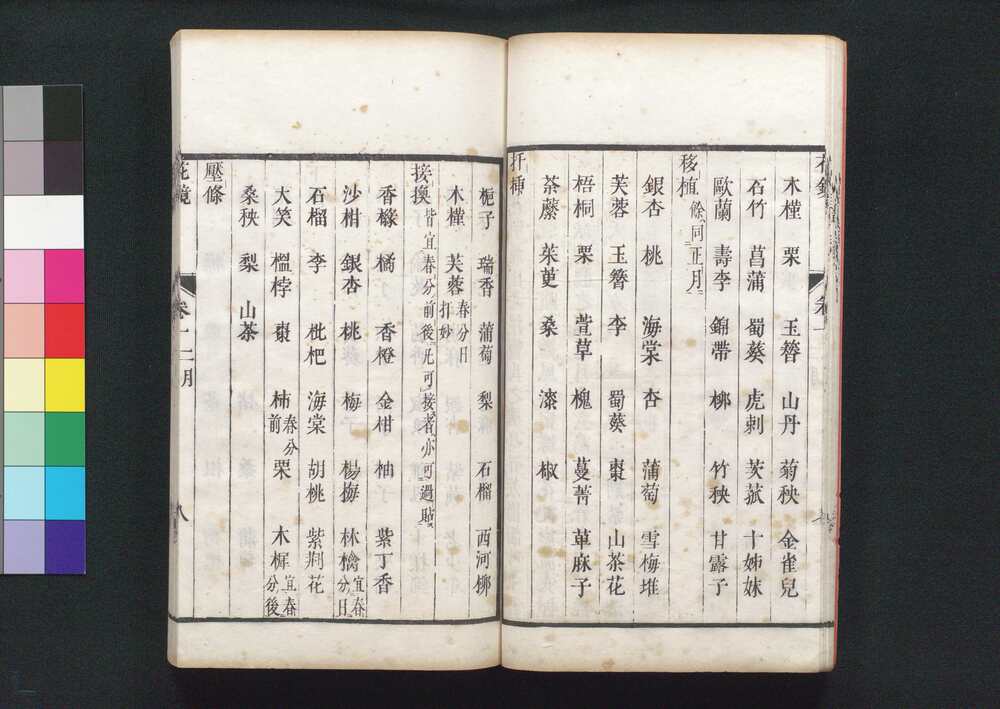 木槿 栗 玉簪 山丹 菊秧 金雀兒
石竹 菖蒲 蜀葵 虎刺 茨菰 十姊妹
歐蘭 壽李 錦帶 柳 竹秧 甘露子
移植 餘同正月
銀杏 桃 海棠 杏 蒲萄 雪梅堆
芙蓉 玉簪 李 蜀葵 棗 山茶花
梧桐 栗 萱草 槐 蔓菁 萆麻子
茶蘼 茱萸 桑 漆 椒
扦揷
梔子 瑞香 蒲萄 梨 石榴 西河柳
木槿 芙蓉 春分日扦妙
接換 皆宜春分前後凡可接者亦可過貼
香櫞 橘 香橙 金柑 柚 紫丁香
沙柑 銀杏 桃 梅 楊梅 林檎 宜春分日
石榴 李 枇杷 海棠 胡桃 紫荆花
大笑 榲桲 棗 柿 春分前 栗 木樨 宜春分後
桑秧 梨 山茶
壓條
花鏡 卷一 二月 八